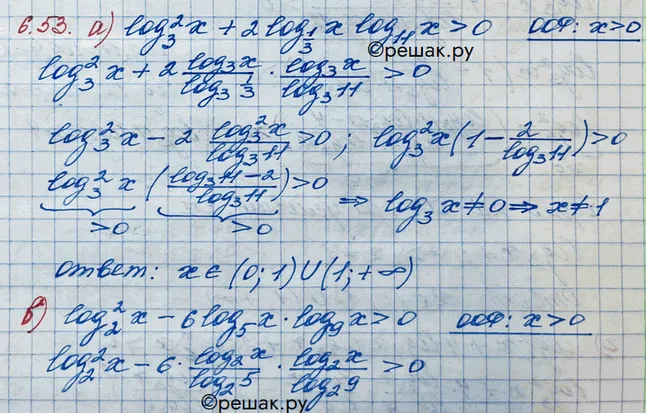 6.53. а) log₃²x + 2 log_{1/3} x log₁₁ x > 0 ООФ: x>0
©решак.ру
log₃²x + 2 (log₃x / log₃ 1/3) · (log₃x / log₃11) > 0
log₃²x − 2 (log₃²x / log₃11) > 0; log₃²x (1 − 2/log₃11) > 0
log₃²x ((log₃11 − 2) / log₃11) > 0 ⇒ log₃ x ≠ 0 ⇒ x ≠ 1
>0 >0
ответ: x ∈ (0; 1) ∪ (1; +∞)
б) log₂²x − 6 log₅x · log₉x > 0 ООФ: x > 0
log₂²x − 6 · (log₂x / log₂5) · (log₂x / log₂9) > 0
©решак.ру